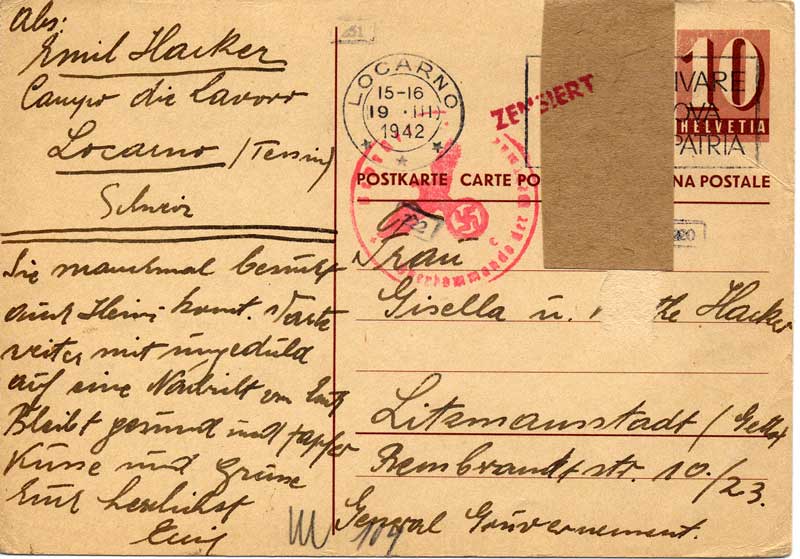 Abs:
Emil Hacker
Campo die Lavoro
Locarno / (Tessin)
Schweiz
Sie manchmal besucht
auch Heini kommt. Warte
weiter mit ungeduld
auf eine Nachricht von Euch
Bleibt gesund und tapfer
Küsse und grüsse
Euch herzlichst
Emil
LOCARNO
15-16
19 . III
1942
ZENSIERT
10
HELVETIA
IVARE
OVA
PATRIA
POSTKARTE CARTE PO NA POSTALE
Oberkommando der
Frau
Gisella u. Hacker
Litzmannstadt / Getto
Rembrandtstr. 10./23.
General Gouvernement.
104